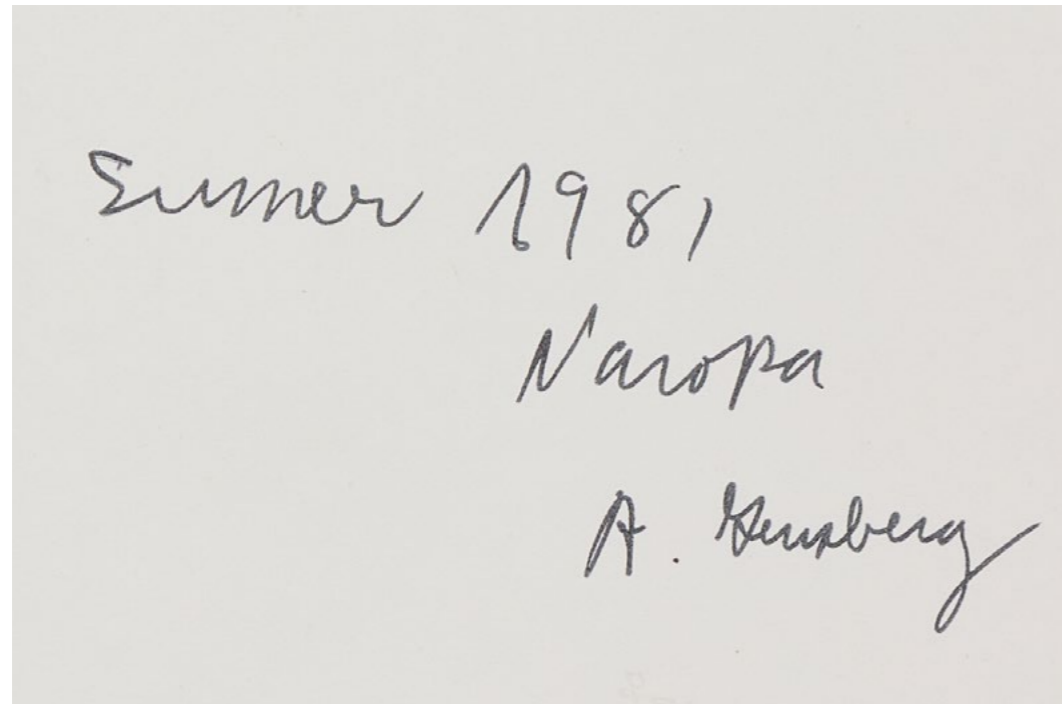 Summer 1981
Naropa
A. Ginsberg